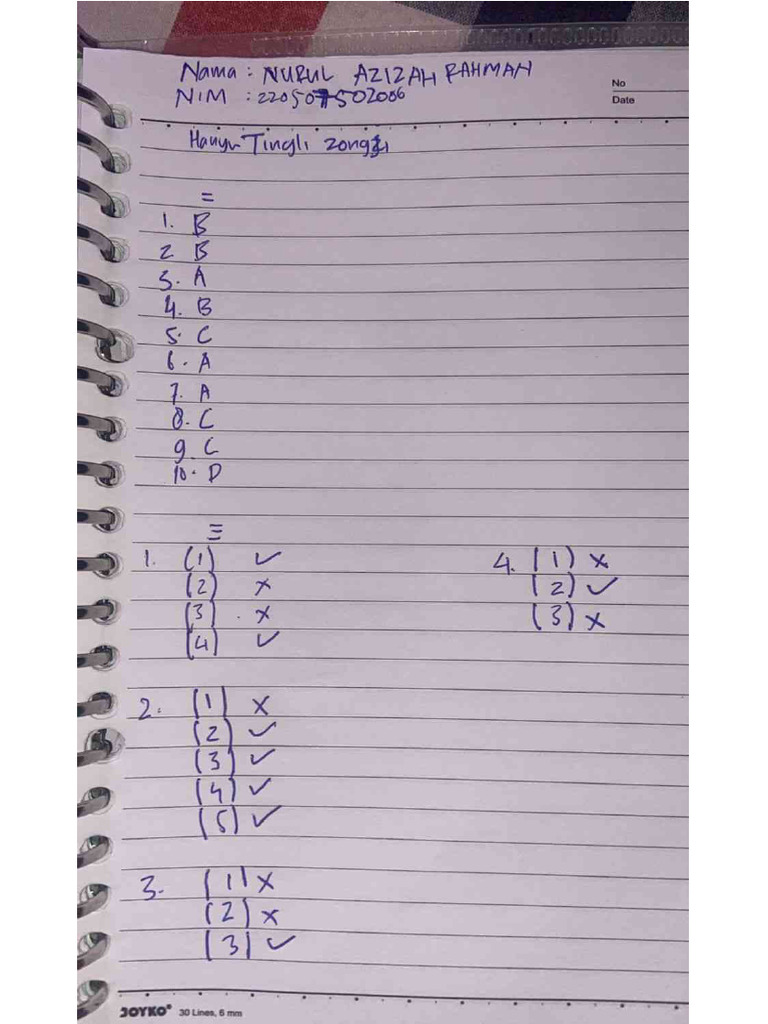 Nama : NURUL AZIZAH RAHMAN
NIM : 220507502006
No
Date
Hanyu Tingli
二
1. B
2 B
3. A
4. B
5. C
6. A
7. A
8. C
9. C
10. D
三
1. (1) ✓
(2) ×
(3) . ×
(4) ✓
4. (1) ×
(2) ✓
(3) ×
2. (1) ×
(2) ✓
(3) ✓
(4) ✓
(5) ✓
3. (1) ×
(2) ×
(3) ✓
JOYKO® 30 Lines, 6 mm